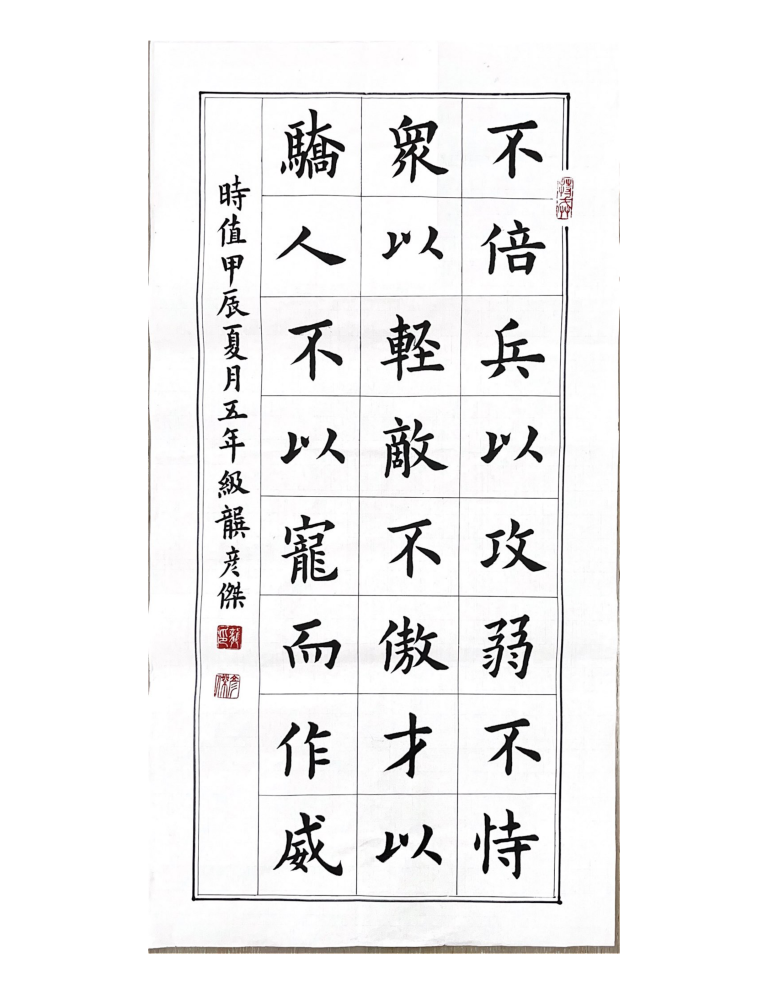 不倍兵以攻弱不恃
衆以軽敵不傲才以
驕人不以寵而作威
時值甲辰夏月五年級龔彦傑
彦傑